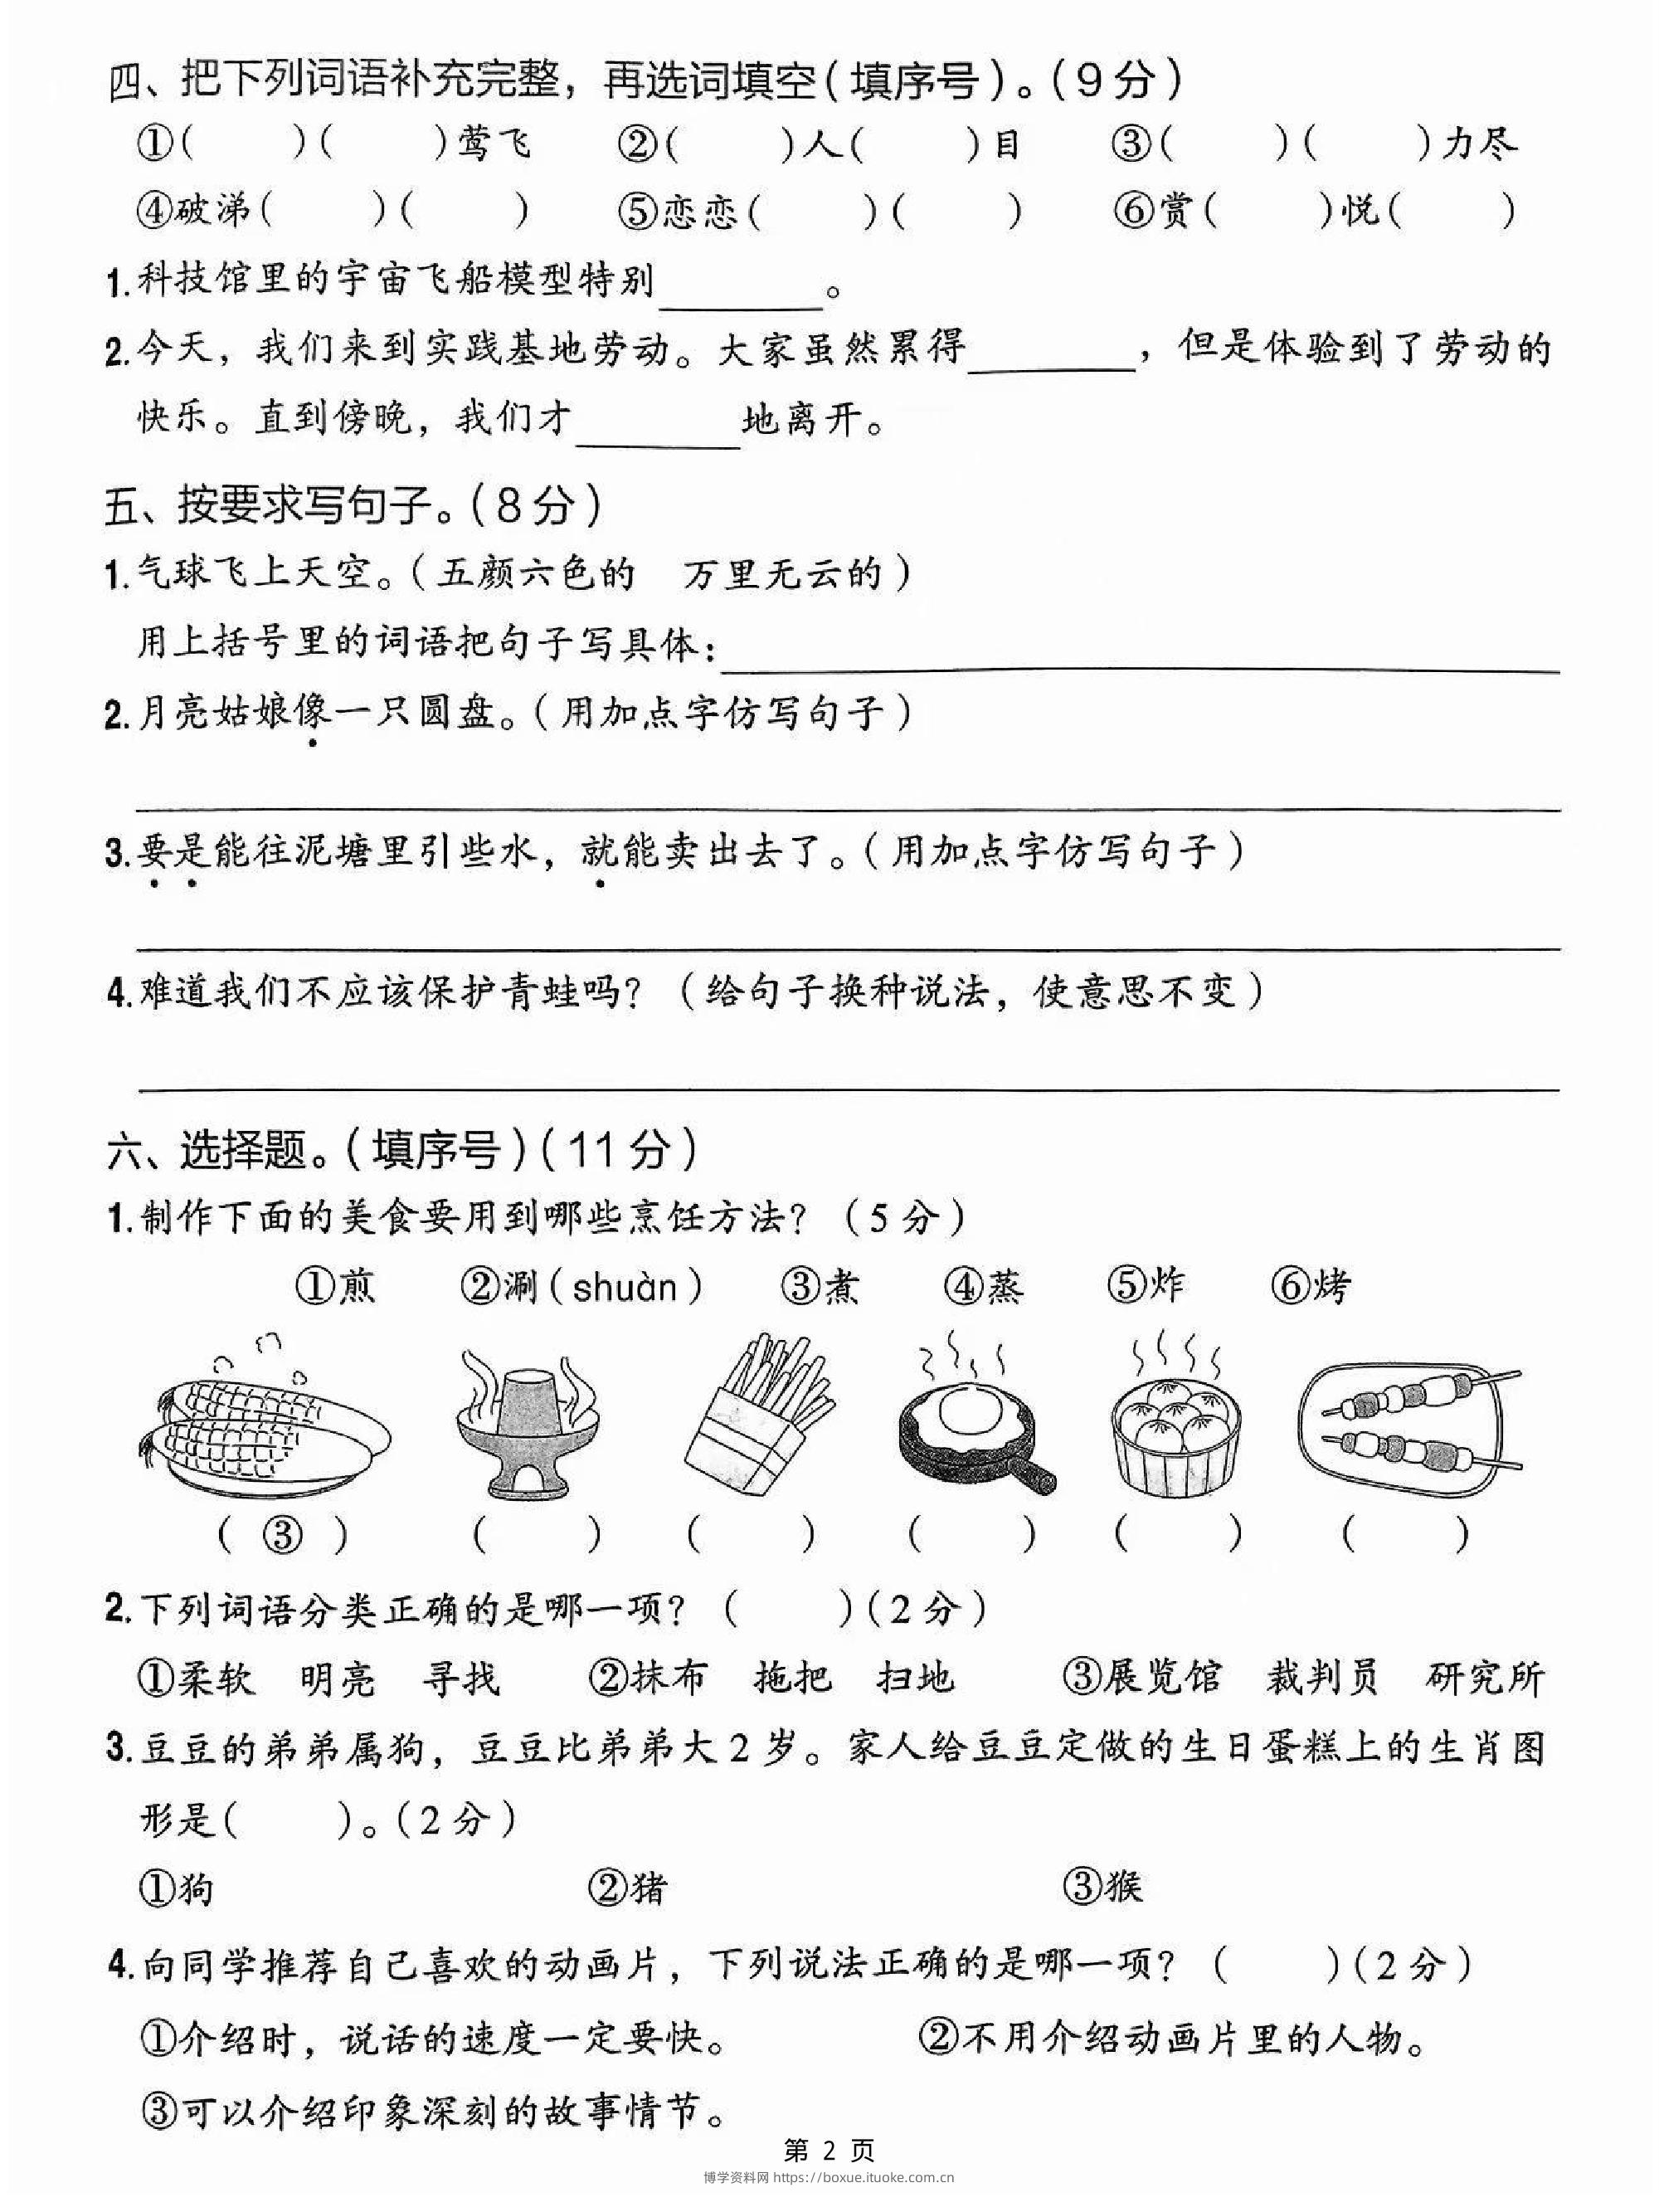 四、把下列词语补充完整，再选词填空(填序号)。(9分)
①(　　)(　　)莺飞　②(　　)人(　　)目　③(　　)(　　)力尽
④破涕(　　)(　　)　⑤恋恋(　　)(　　)　⑥赏(　　)悦(　　)
1.科技馆里的宇宙飞船模型特别________。
2.今天，我们来到实践基地劳动。大家虽然累得________，但是体验到了劳动的
快乐。直到傍晚，我们才________地离开。
五、按要求写句子。(8分)
1.气球飞上天空。(五颜六色的　万里无云的)
用上括号里的词语把句子写具体：________
2.月亮姑娘像一只圆盘。(用加点字仿写句子)
3.要是能往泥塘里引些水，就能卖出去了。(用加点字仿写句子)
4.难道我们不应该保护青蛙吗？(给句子换种说法，使意思不变)
六、选择题。(填序号)(11分)
1.制作下面的美食要用到哪些烹饪方法？(5分)
①煎　②涮(shuàn)　③煮　④蒸　⑤炸　⑥烤
(③)　(　　)　(　　)　(　　)　(　　)　(　　)
2.下列词语分类正确的是哪一项？(　　)(2分)
①柔软　明亮　寻找　②抹布　拖把　扫地　③展览馆　裁判员　研究所
3.豆豆的弟弟属狗，豆豆比弟弟大2岁。家人给豆豆定做的生日蛋糕上的生肖图
形是(　　)。(2分)
①狗　②猪　③猴
4.向同学推荐自己喜欢的动画片，下列说法正确的是哪一项？(　　)(2分)
①介绍时，说话的速度一定要快。　②不用介绍动画片里的人物。
③可以介绍印象深刻的故事情节。
第 2 页
博学资料网 https://boxue.ituoke.com.cn